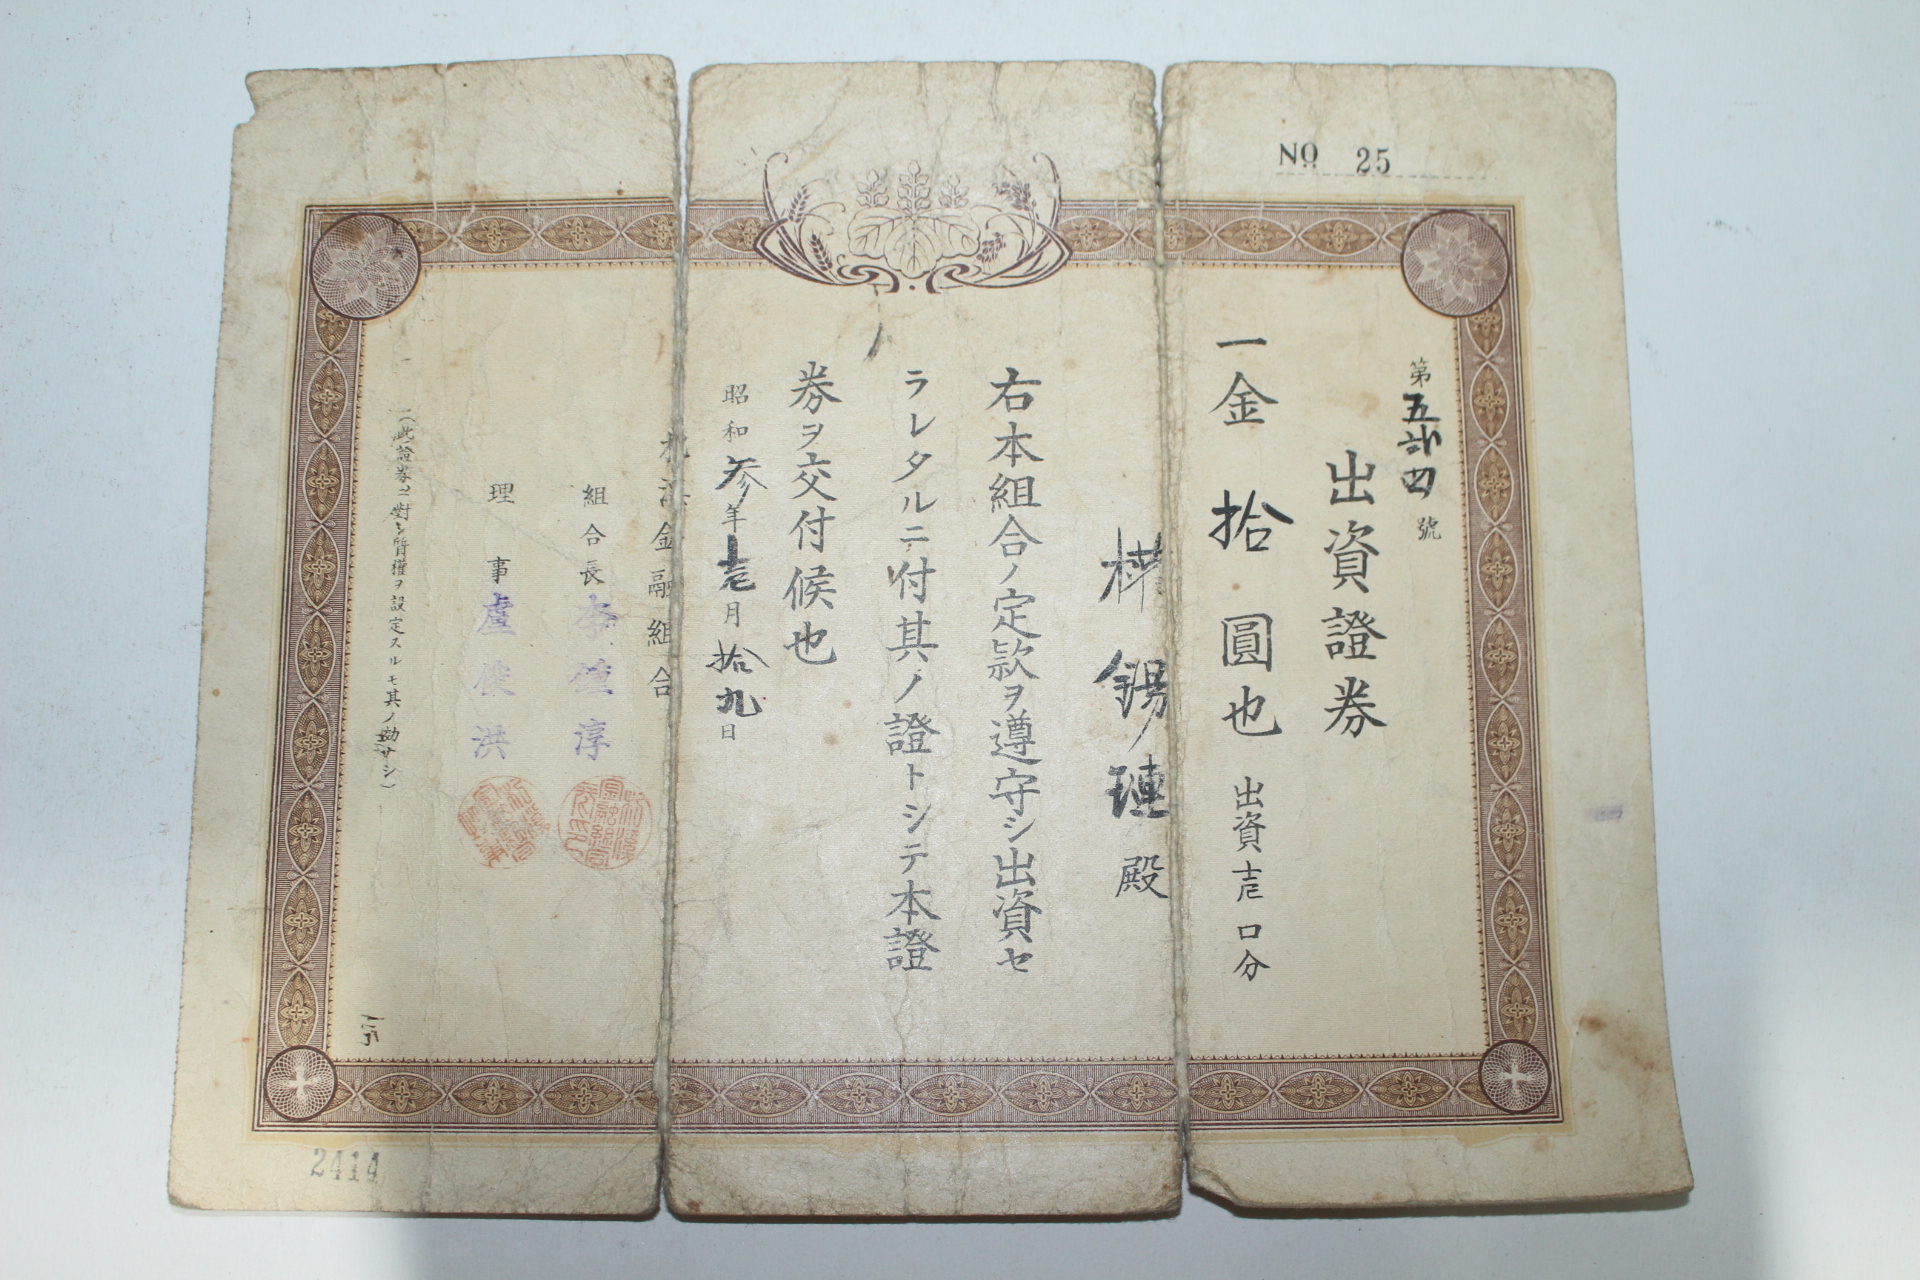 NO 25
第五弍四號
出資證券
一金拾圓也 出資壱口分
錫璉殿
右本組合ノ定款ヲ遵守シ出資セ
ラレタルニ付其ノ證トシテ本證
券ヲ交付候也
昭和参年壱月拾九日
金融組合
組合長 李鍾淳
理事 盧俊洪
(此證券ニ對シ質權ヲ設定スルモ其ノ効ナシ)
2414